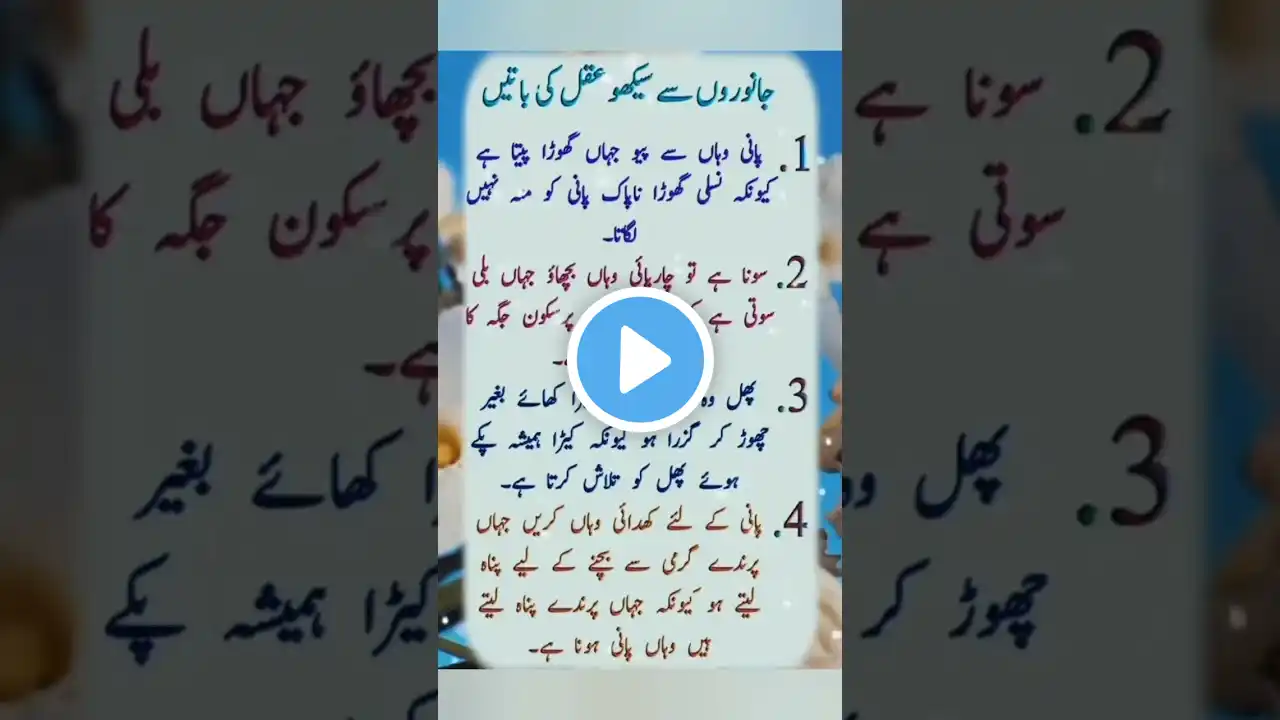 جانوروں سے سیکھو عقل کی باتیں
1. پانی وہاں سے پیو جہاں گھوڑا پیتا ہے
کیونکہ نسلی گھوڑا ناپاک پانی کو منہ نہیں
لگاتا۔
2. سونا ہے تو چارپائی وہاں بچھاؤ جہاں بلی
سوتی ہے پرسکون جگہ کا
3. پھل وہ کھائے بغیر
چھوڑ کر گزرا ہو کیونکہ کیڑا ہمیشہ پکے
ہوئے پھل کو تلاش کرتا ہے۔
4. پانی کے لئے کھدائی وہاں کریں جہاں
پرندے گرمی سے بچنے کے لیے پناہ
لیتے ہو کیونکہ جہاں پرندے پناہ لیتے
ہیں وہاں پانی ہونا ہے۔